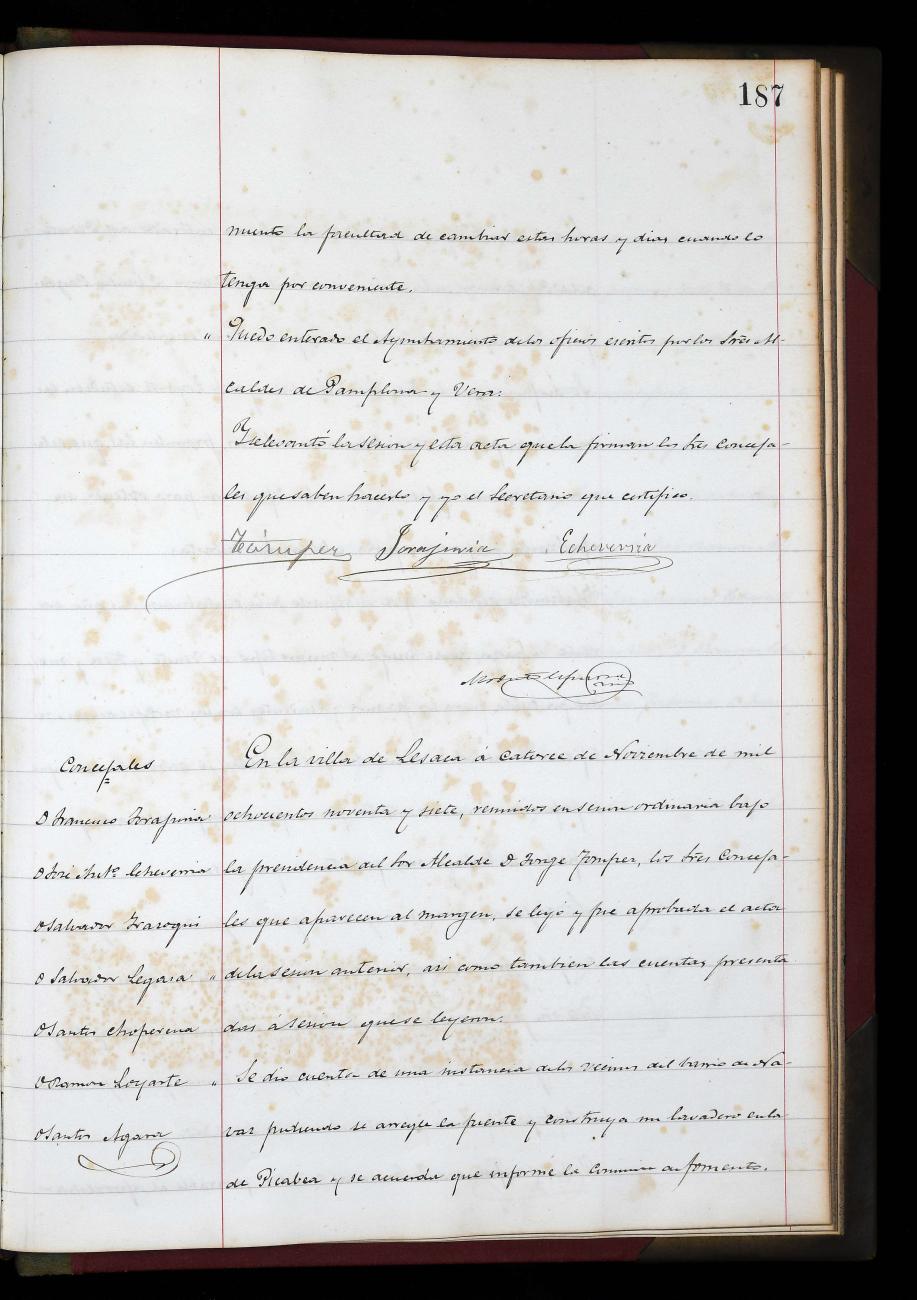 187
miento la facultad de cambiar estas horas y dias cuando lo
tenga por conveniente.
" Quedo enterado el Ayuntamiento de los oficios escritos por los Sres Al-
caldes de Pamplona y Vera:
Y se levantó la sesion y esta acta que la firman los Sres Conceja-
les que saben hacerlo y yo el Secretario que certifico.
Tómper Jorajuria Echeverria
Concejales
D Francisco Jorajuria
D José Ant.º Echeverria
D Salvador Irazoqui
D Salvador Legasa "
D Santos Choperena
D Ramon Loyarte "
D Santos Agara
En la villa de Lesaca á catorce de Noviembre de mil
ochocientos noventa y siete, reunidos en sesion ordinaria bajo
la presidencia del Sor Alcalde D Jorge Tomper, los Sres Conceja-
les que aparecen al margen, se leyó y fue aprobada el acta
de la sesion anterior, asi como tambien las cuentas presenta
das á sesion que se leyeron:
Se dio cuenta de una instancia de los vecinos del barrio de Na-
vaz pidiendo se arregle la fuente y construya un lavadero en la
de Picabea y se acuerda que informe la Comision de fomento.